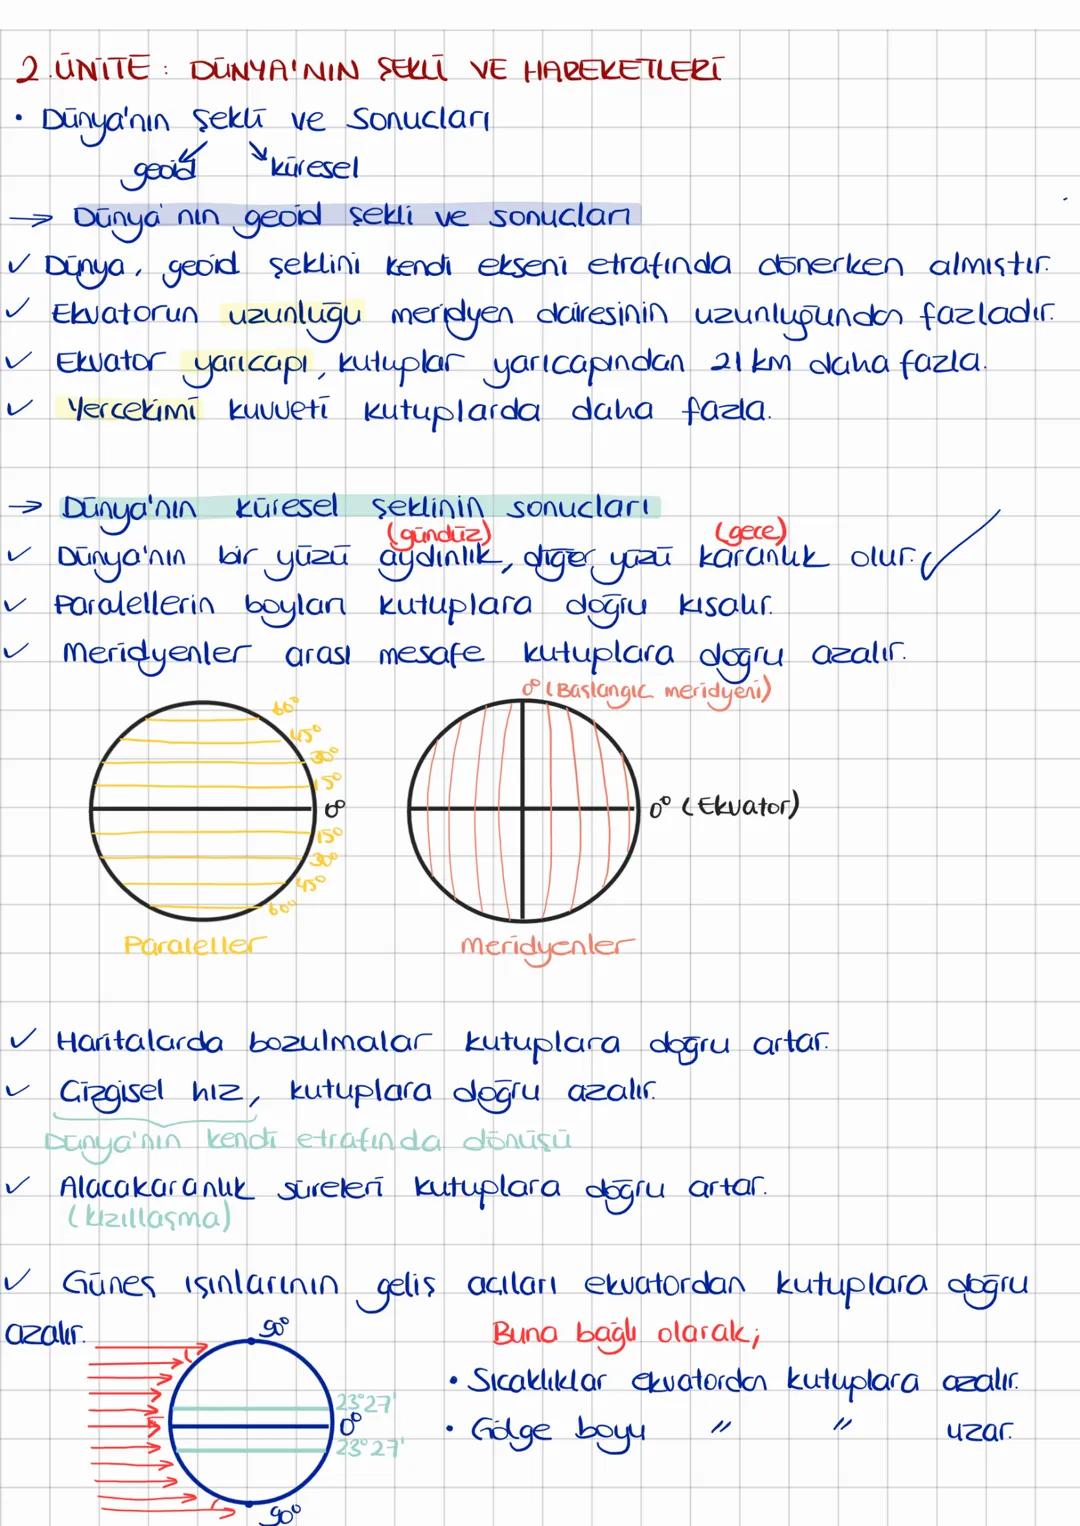 2.ÜNİTE : DÜNYA'NIN ŞEKLİ VE HAREKETLERİ
• Dünya'nın şekli ve Sonucları
geoid küresel
→ Dünya'nın geoid şekli ve sonucları
✓ Dünya, geoid şeklini kendi ekseni etrafında dönerken almıştır.
✓ Ekvatorun uzunluğu meridyen dairesinin uzunluğundan fazladır.
✓ Ekvator yarıcapı, kutuplar yarıcapından 21 km daha fazla.
✓ Yercekimi kuvveti kutuplarda daha fazla.
→ Dünya'nın küresel şeklinin sonucları
(gündüz) (gece)
✓ Dünya'nın bir yüzü aydınlık, diğer yüzü karanlık olur. ✓
✓ Paralellerin boyları kutuplara doğru kısalır.
✓ Meridyenler arası mesafe kutuplara doğru azalır.
0° (Baslangıc meridyeni)
60°
45°
30°
15°
0°
0° (Ekvator)
15°
30°
45°
60°
Paraleller
Meridyenler
✓ Haritalarda bozulmalar kutuplara doğru artar.
✓ Cizgisel hız, kutuplara doğru azalır.
Dünya'nın kendi etrafında dönüşü
✓ Alacakaranlık süreleri kutuplara doğru artar.
(kızıllaşma)
✓ Güneş ışınlarının geliş acıları ekvatordan kutuplara doğru
azalır.
90°
Buna bağlı olarak;
• Sıcaklıklar ekvatordan kutuplara azalır.
23°27'
0°
• Gölge boyu " " uzar.
23°27'
90°